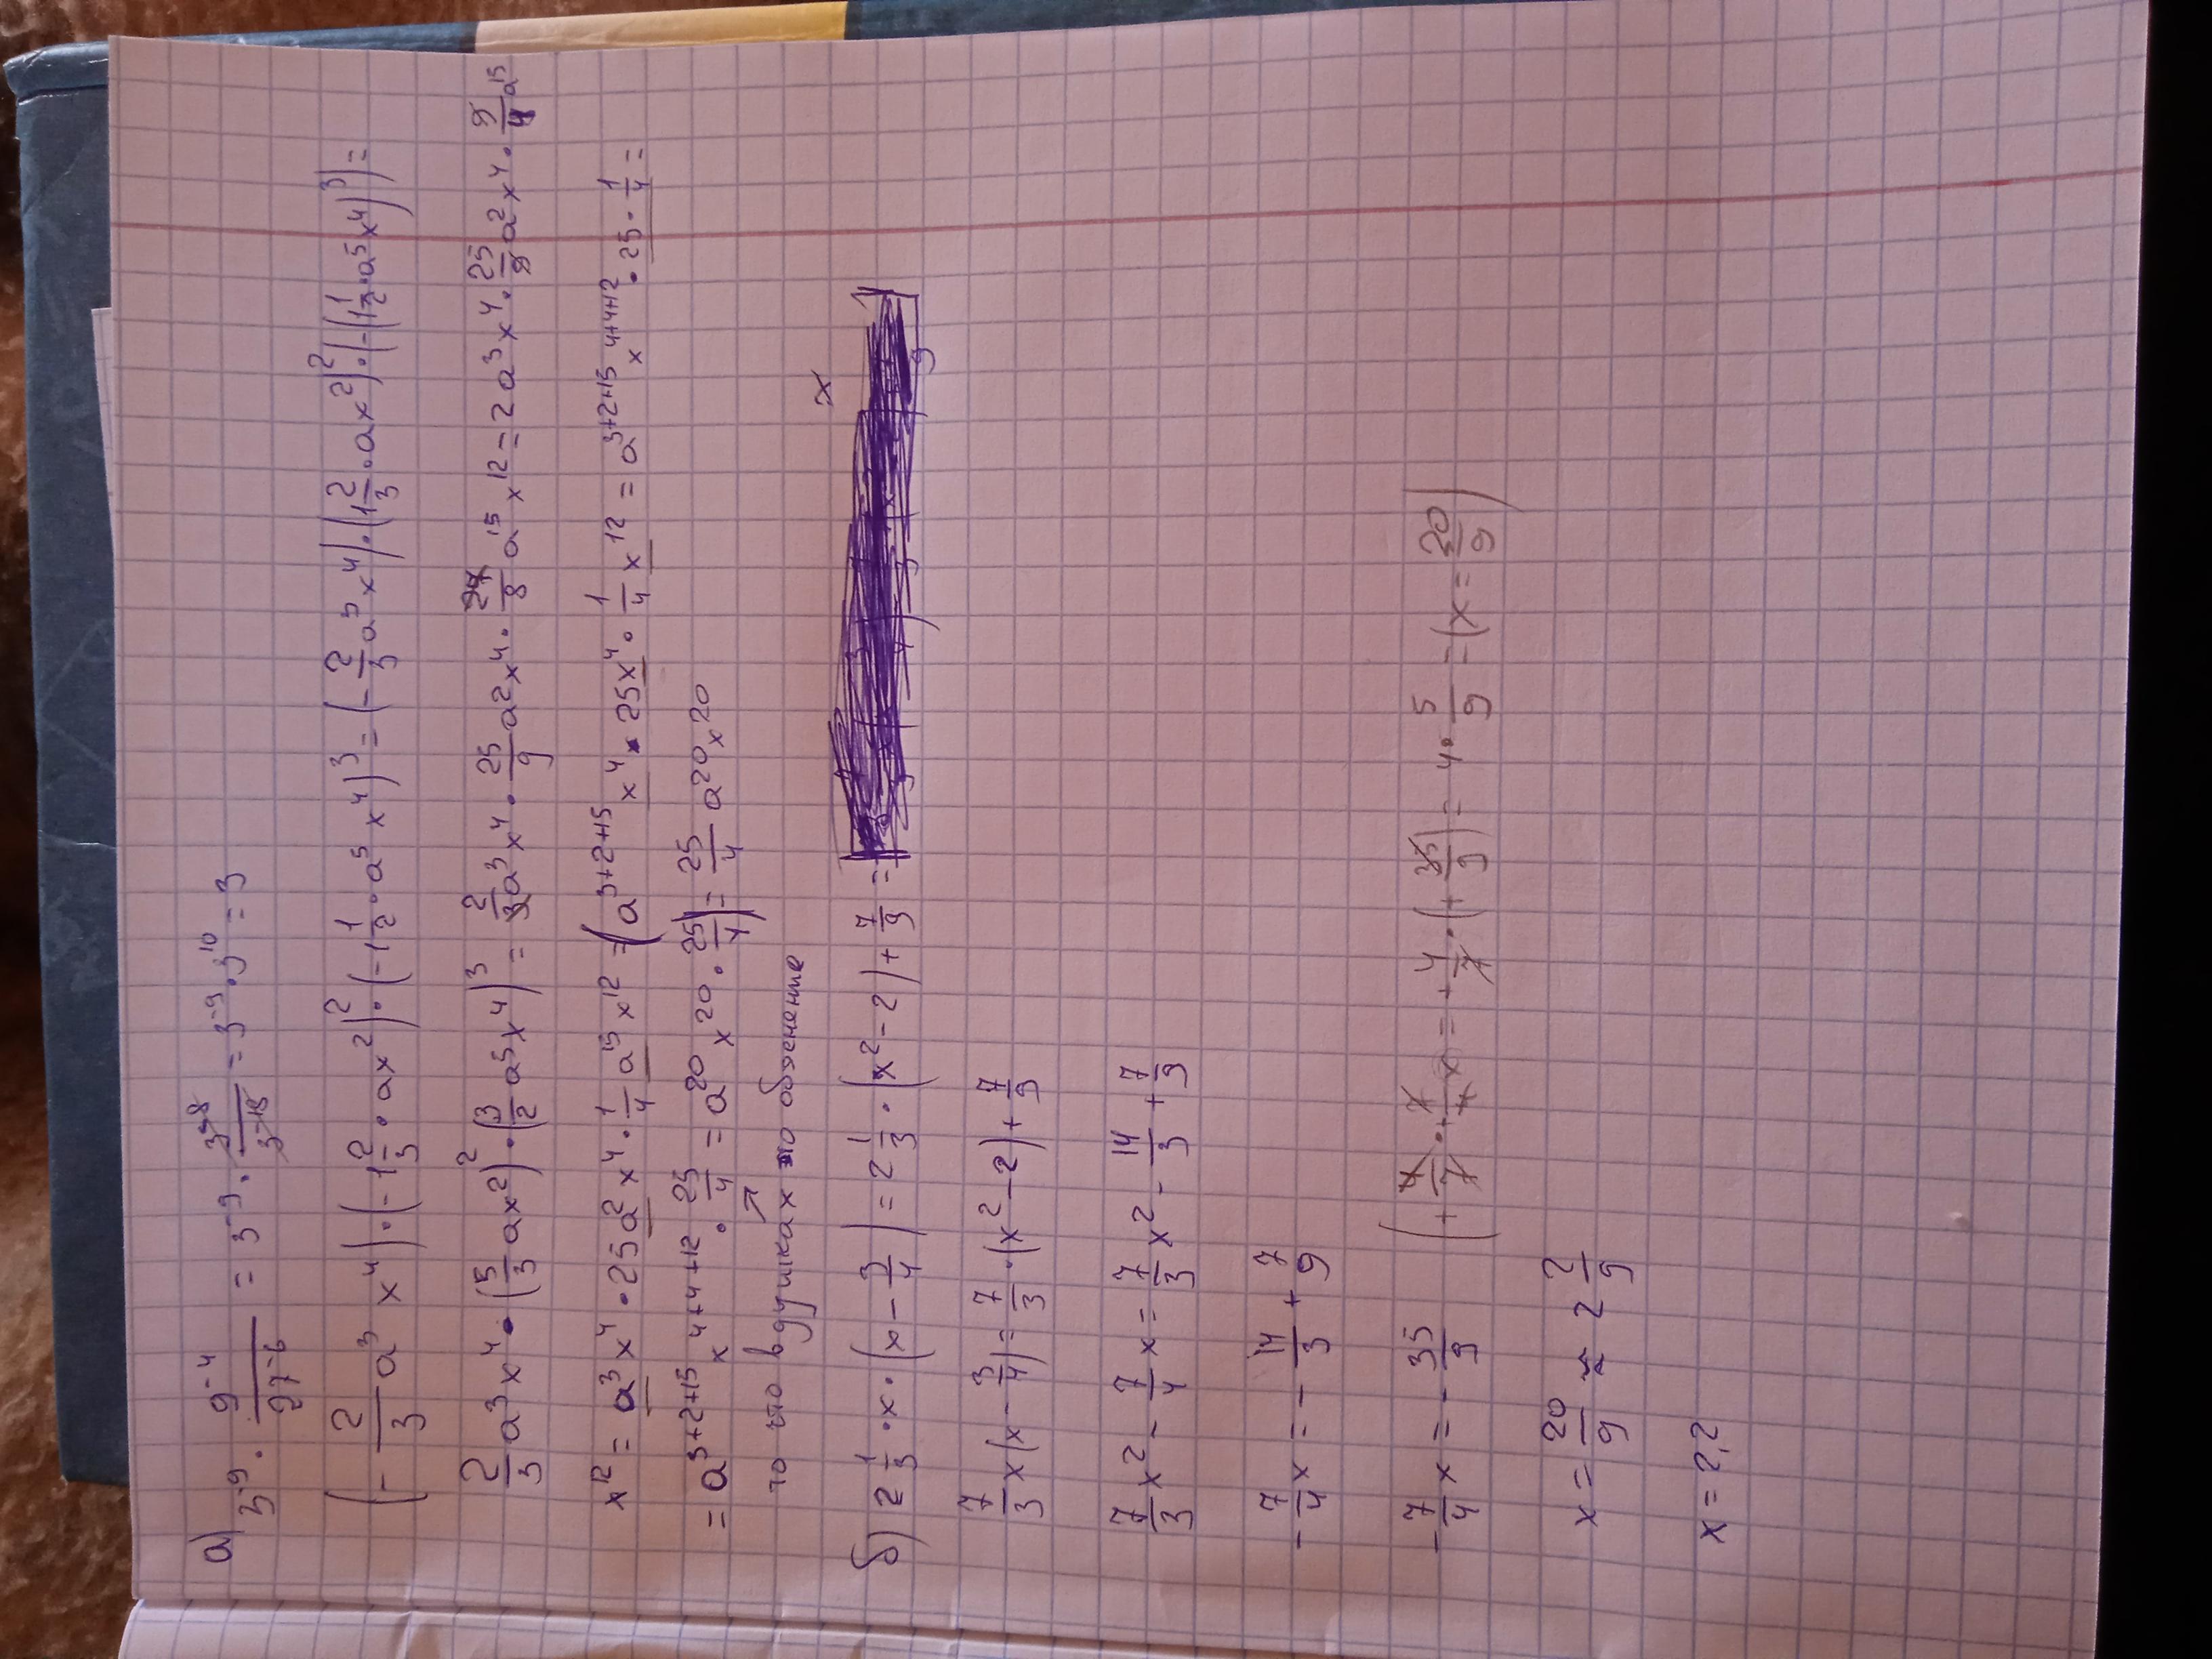 а) 3^-9 · 9^-4/27^-6 = 3^-9 · 3^-8/3^-18 = 3^-9 · 3^10 = 3
(-2/3 a^3 x^4) · (-1 2/3 · ax^2)^2 · (-1 1/2 · a^5 x^4)^3 = (-2/3 a^3 x^4) · (1 2/3 · ax^2)^2 · (-(1 1/2 a^5 x^4)^3) =
2/3 a^3 x^4 · (5/3 ax^2)^2 · (3/2 a^5 x^4)^3 = 2/3 a^3 x^4 · 25/9 a^2 x^4 · 27/8 a^15 x^12 = 2a^3 x^4 · 25/9 a^2 x^4 · 9/4 a^15
x^12 = a^3 x^4 · 25a^2 x^4 · 1/4 a^15 x^12 = (a^3+2+15 x^4 · 25x^4 · 1/4 x^12 = a^3+2+15 x^4+4+12 · 25 · 1/4 =
= a^3+2+15 x^4+4+12 · 25/4 = a^20 x^20 · 25/4) = 25/4 a^20 x^20
то что в душках это обженение
х
б) 2 1/3 · x · (x - 3/4) = 2 1/3 · (x^2 - 2) + 7/9 =
7/3 x (x - 3/4) = 7/3 · (x^2 - 2) + 7/9
7/3 x^2 - 7/4 x = 7/3 x^2 - 14/3 + 7/9
-7/4 x = -14/3 + 7/9
-7/4 x = -35/9 (+4/7 · +7/4 x = +4/7 · (+35/9) = 4 · 5/9 = (x = 20/9)
x = 20/9 ≈ 2 2/9
x = 2,2